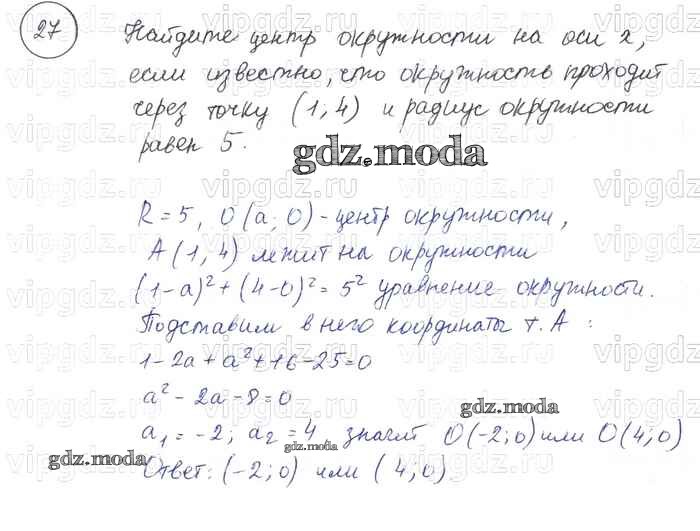 27
Найдите центр окружности на оси x,
если известно, что окружность проходит
через точку (1, 4) и радиус окружности
равен 5.
gdz.moda
R = 5, O (a; 0) - центр окружности,
A (1, 4) лежит на окружности
(1-a)² + (4-0)² = 5² уравнение окружности.
Подставим в него координаты т. A :
1-2a+a²+16-25=0
a² - 2a - 8 = 0
gdz.moda
a₁ = -2; a₂ = 4 значит O(-2;0) или O(4;0)
gdz.moda
gdz.moda
Ответ: (-2;0) или (4;0)